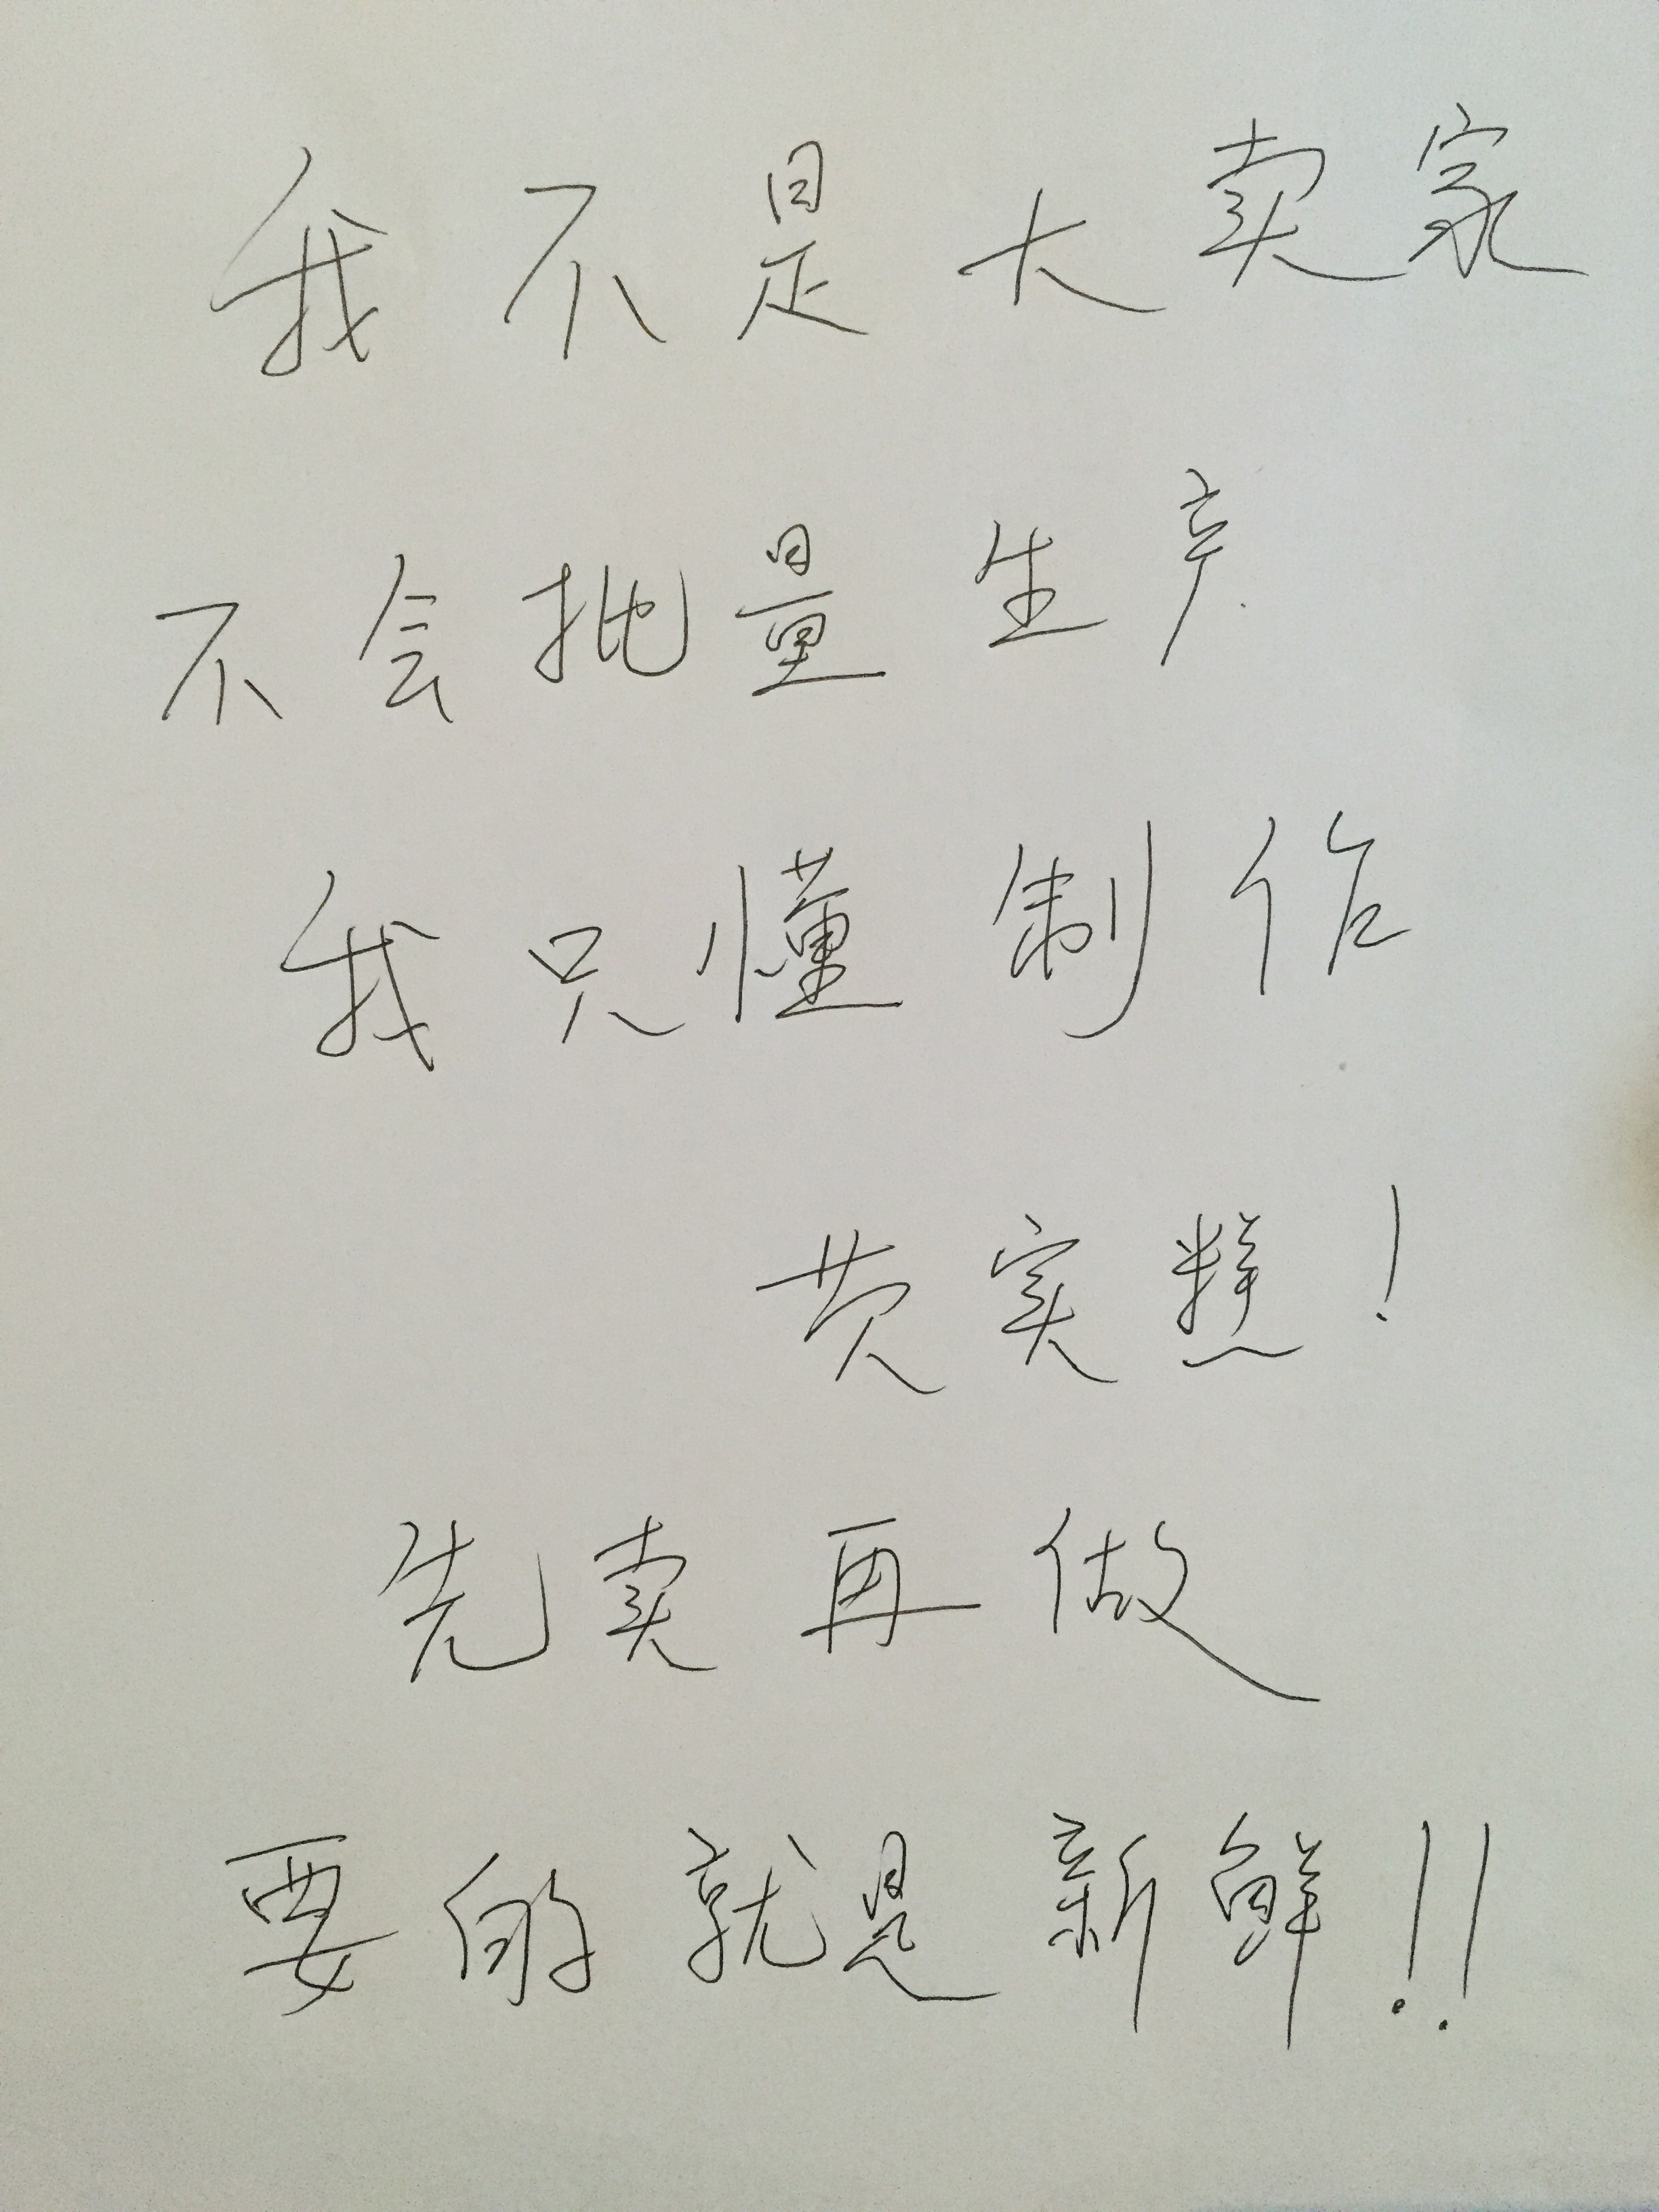 我不是大卖家
不会批量生产
我只懂制作
芡实糕!
先卖再做
要的就是新鲜!!